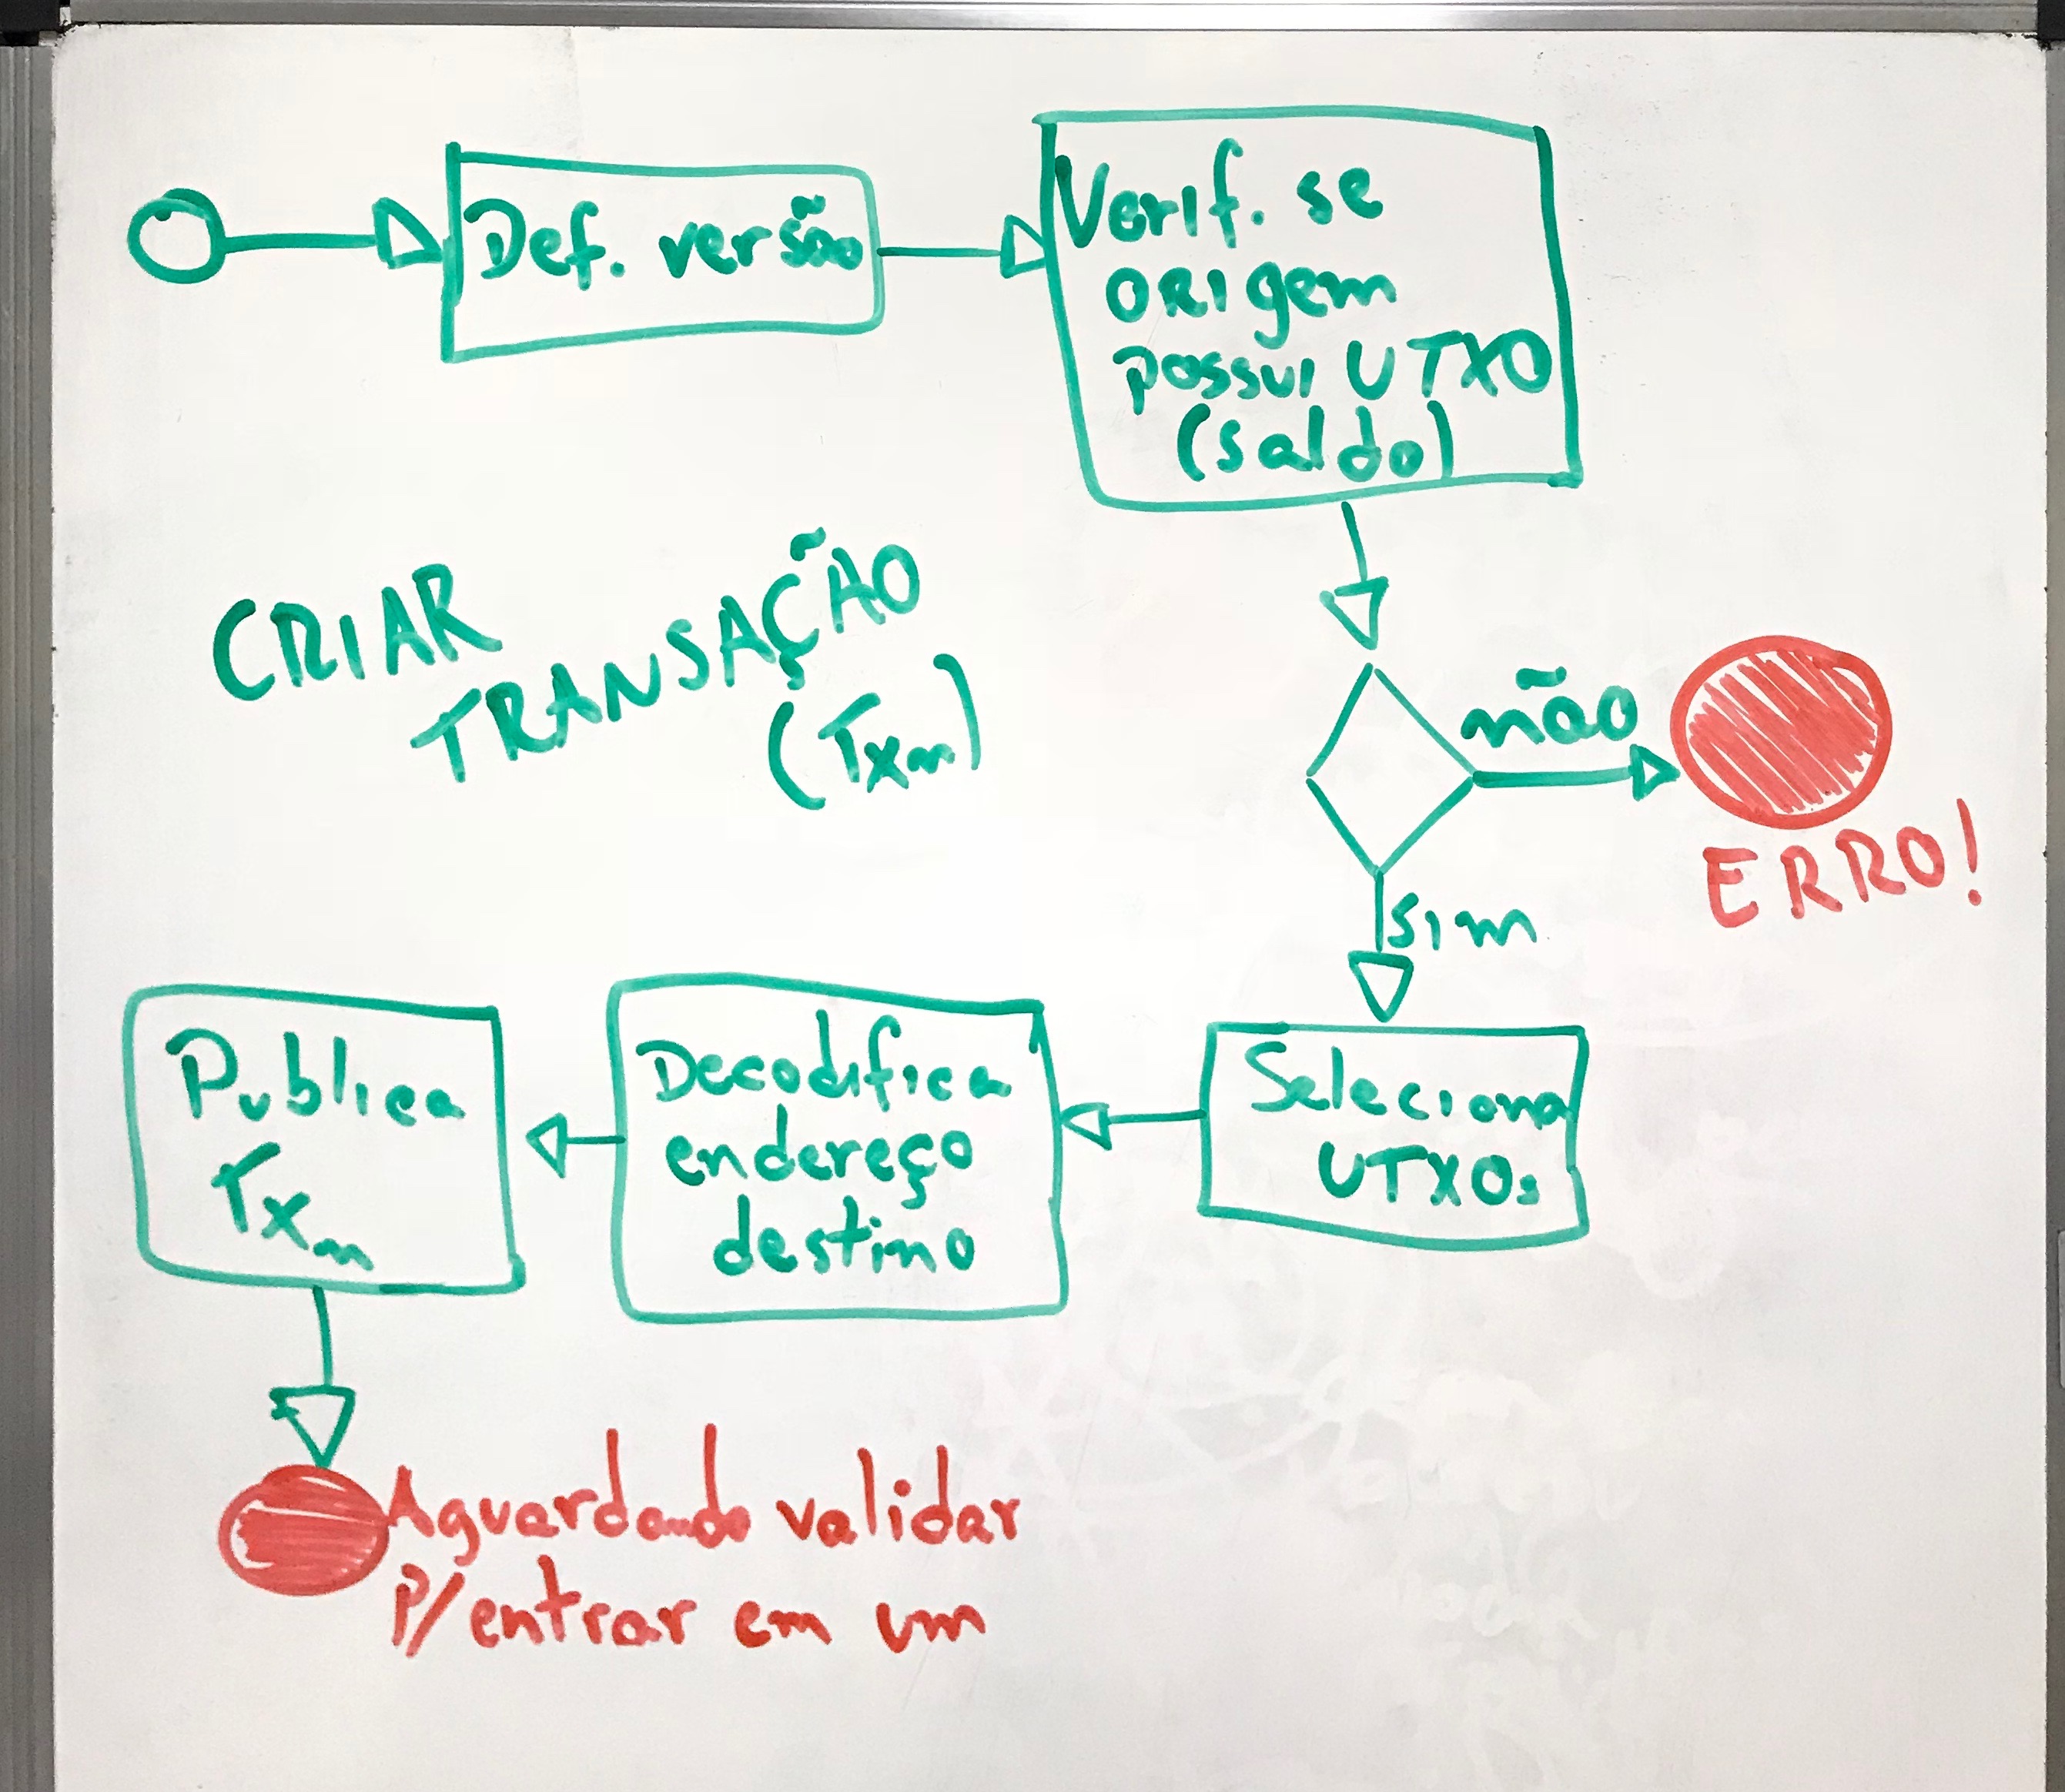 Def. versão
Verif. se
origem
possui UTXO
(saldo)
CRIAR
TRANSAÇÃO
(Txn)
não
ERRO!
sim
Seleciona
UTXOs
Decodifica
endereço
destino
Publica
Txn
Aguardando validar
p/ entrar em um